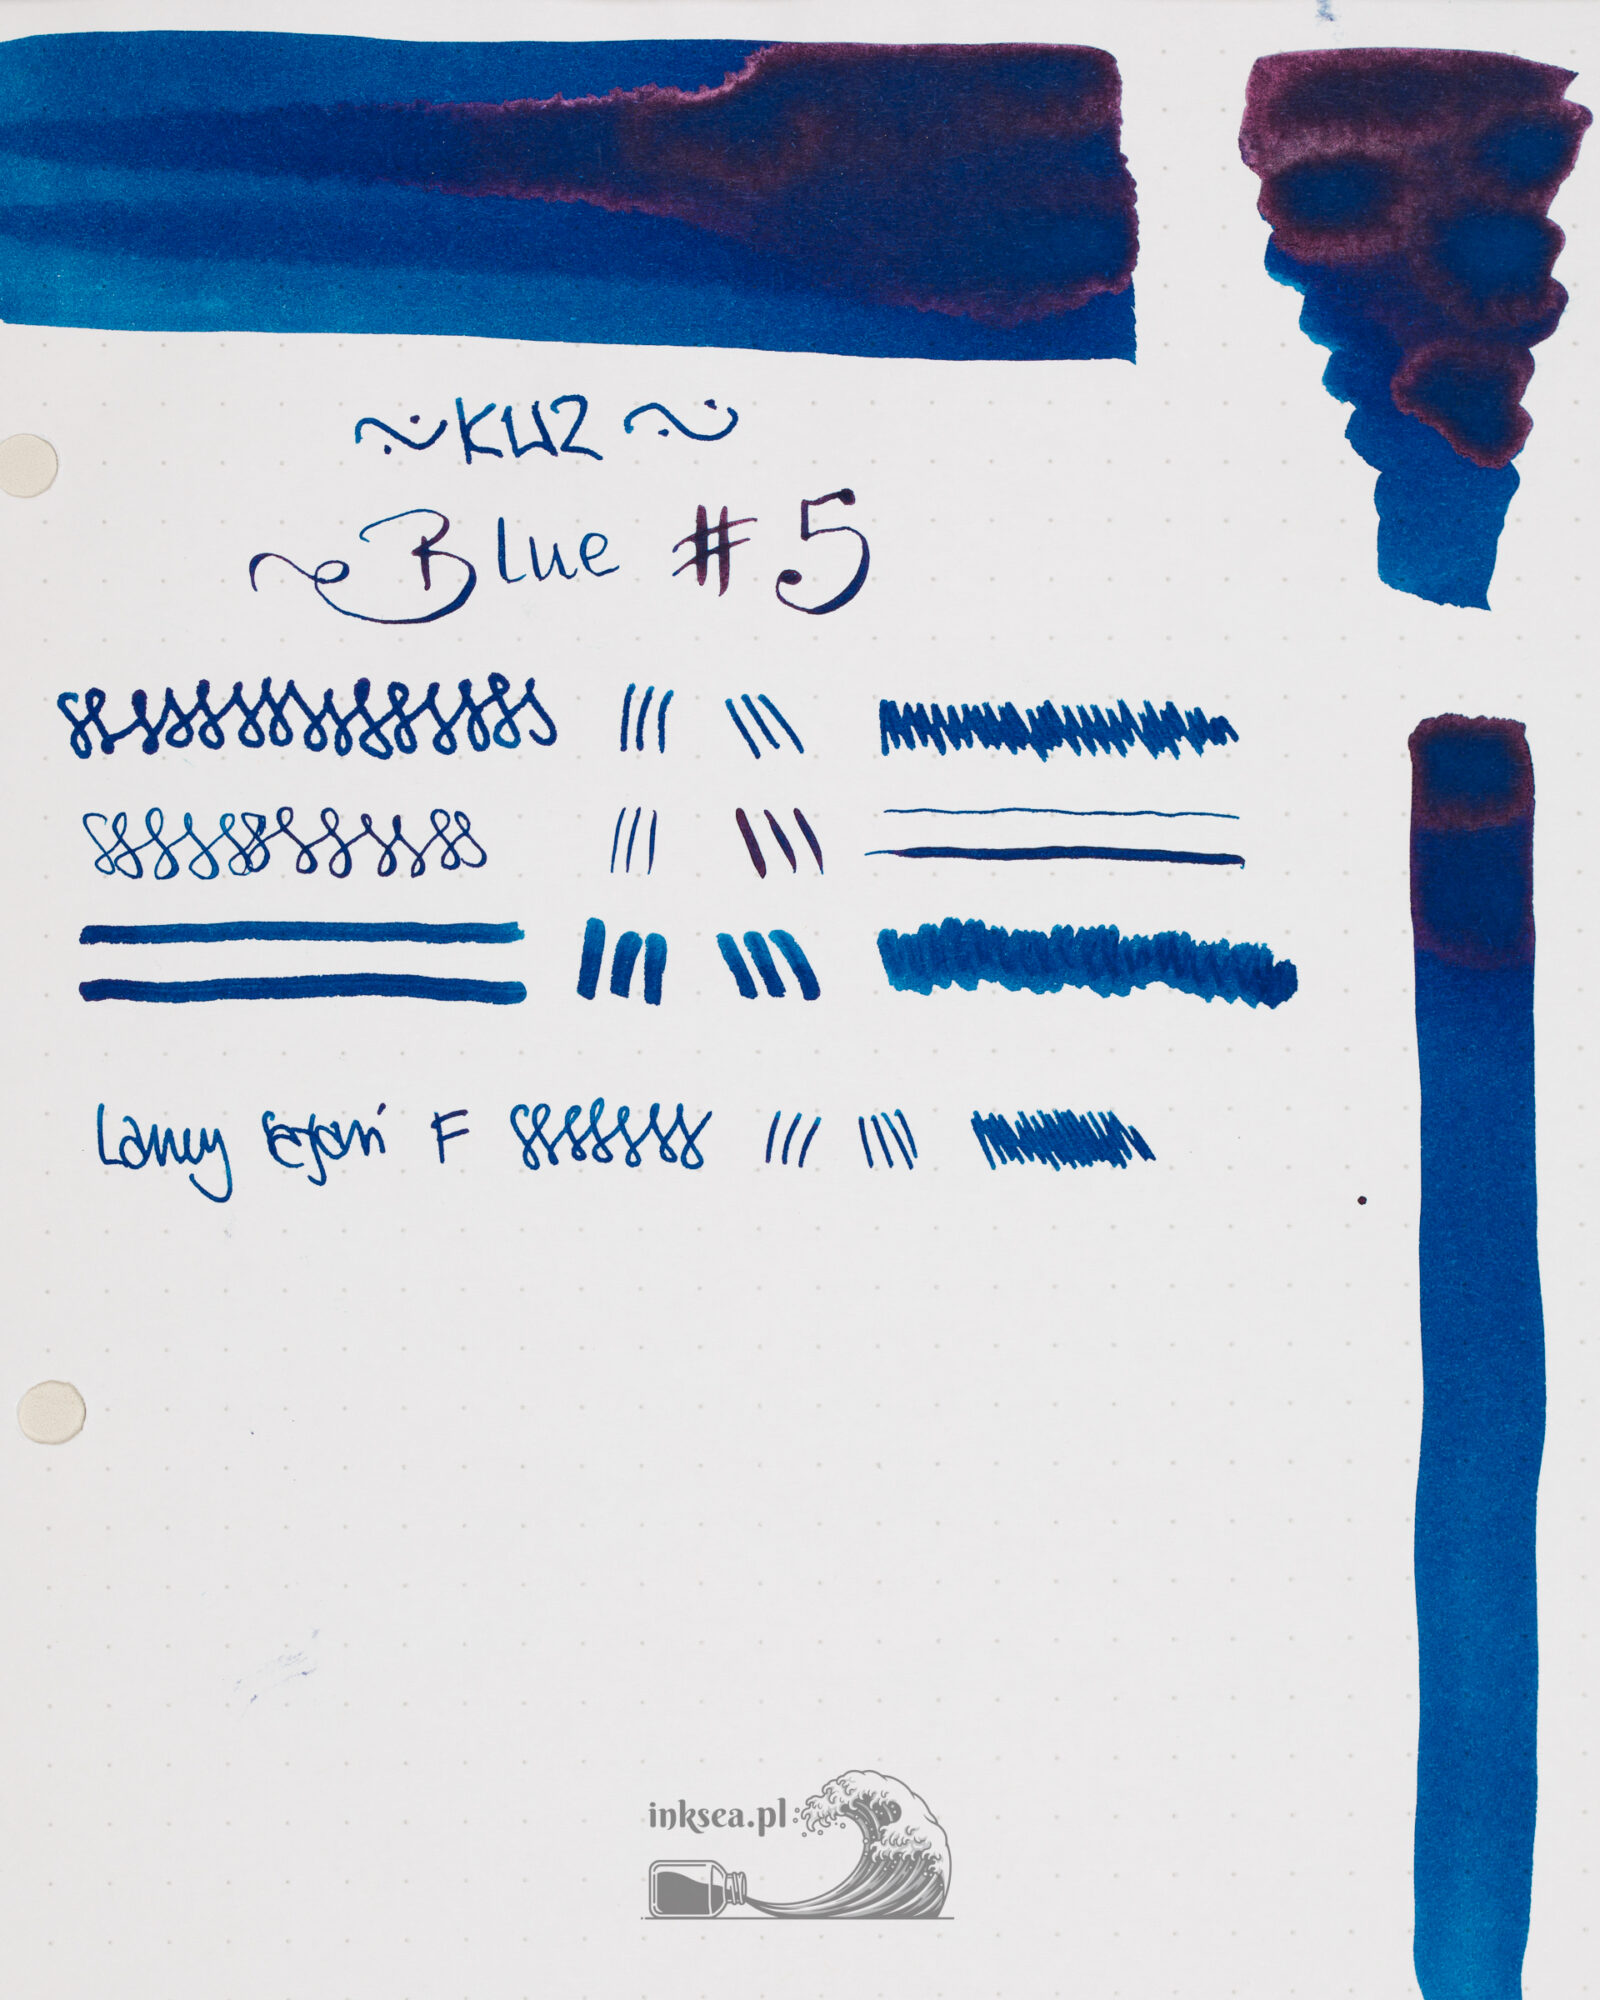 ~ KWZ ~
Blue #5
Lamy Safari F
inksea.pl